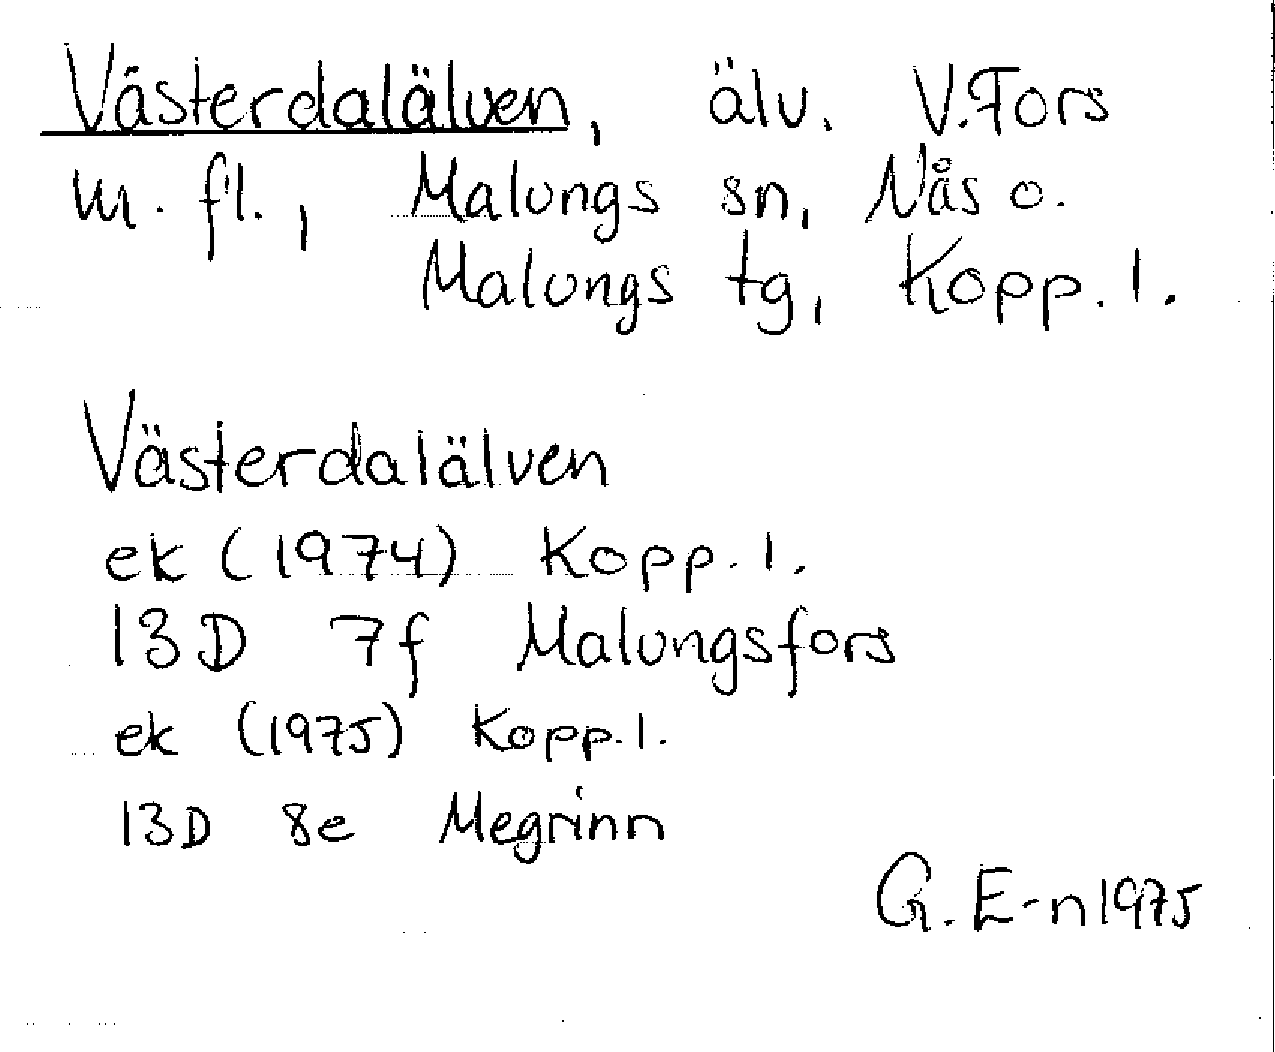 Västerdalälven, älv. V.Fors
m. fl., Malungs sn, Nås o.
Malungs tg, Kopp. l.
Västerdalälven
ek (1974) Kopp. l.
13D 7f Malungsfors
ek (1975) Kopp. l.
13D 8e Megrinn
G. E-n 1975